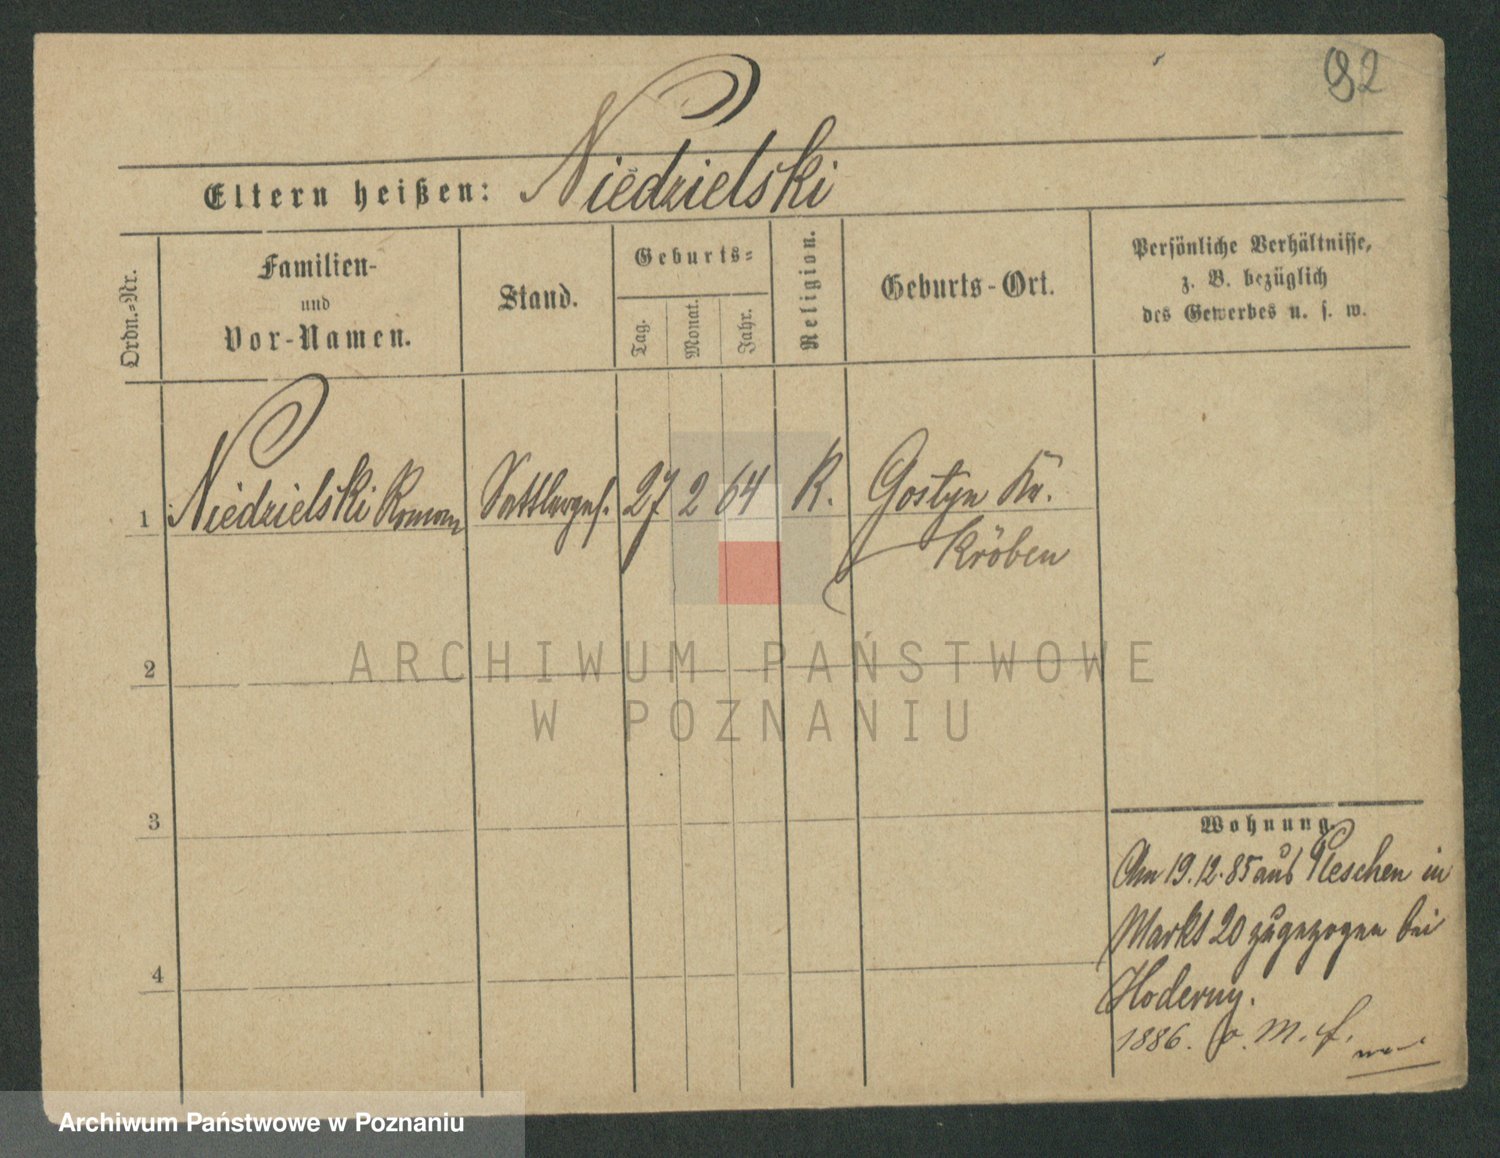 92
Eltern heißen: Niedzielski
Ordn.-Nr.
Familien-
und
Vor-Namen.
Stand.
Geburts-
Tag.
Monat.
Jahr.
Religion.
Geburts-Ort.
Persönliche Verhältnisse,
z. B. bezüglich
des Gewerbes u. s. w.
1 Niedzielski Roman Sattlerges. 27 2 64 K. Gostyn Kr.
Kröben
2
3
4
Wohnung.
Am 19.12.85 aus Pleschen in
Markt 20 zugezogen bei
Hoderny.
1886. o. M. f.
ARCHIWUM PAŃSTWOWE
W POZNANIU
Archiwum Państwowe w Poznaniu